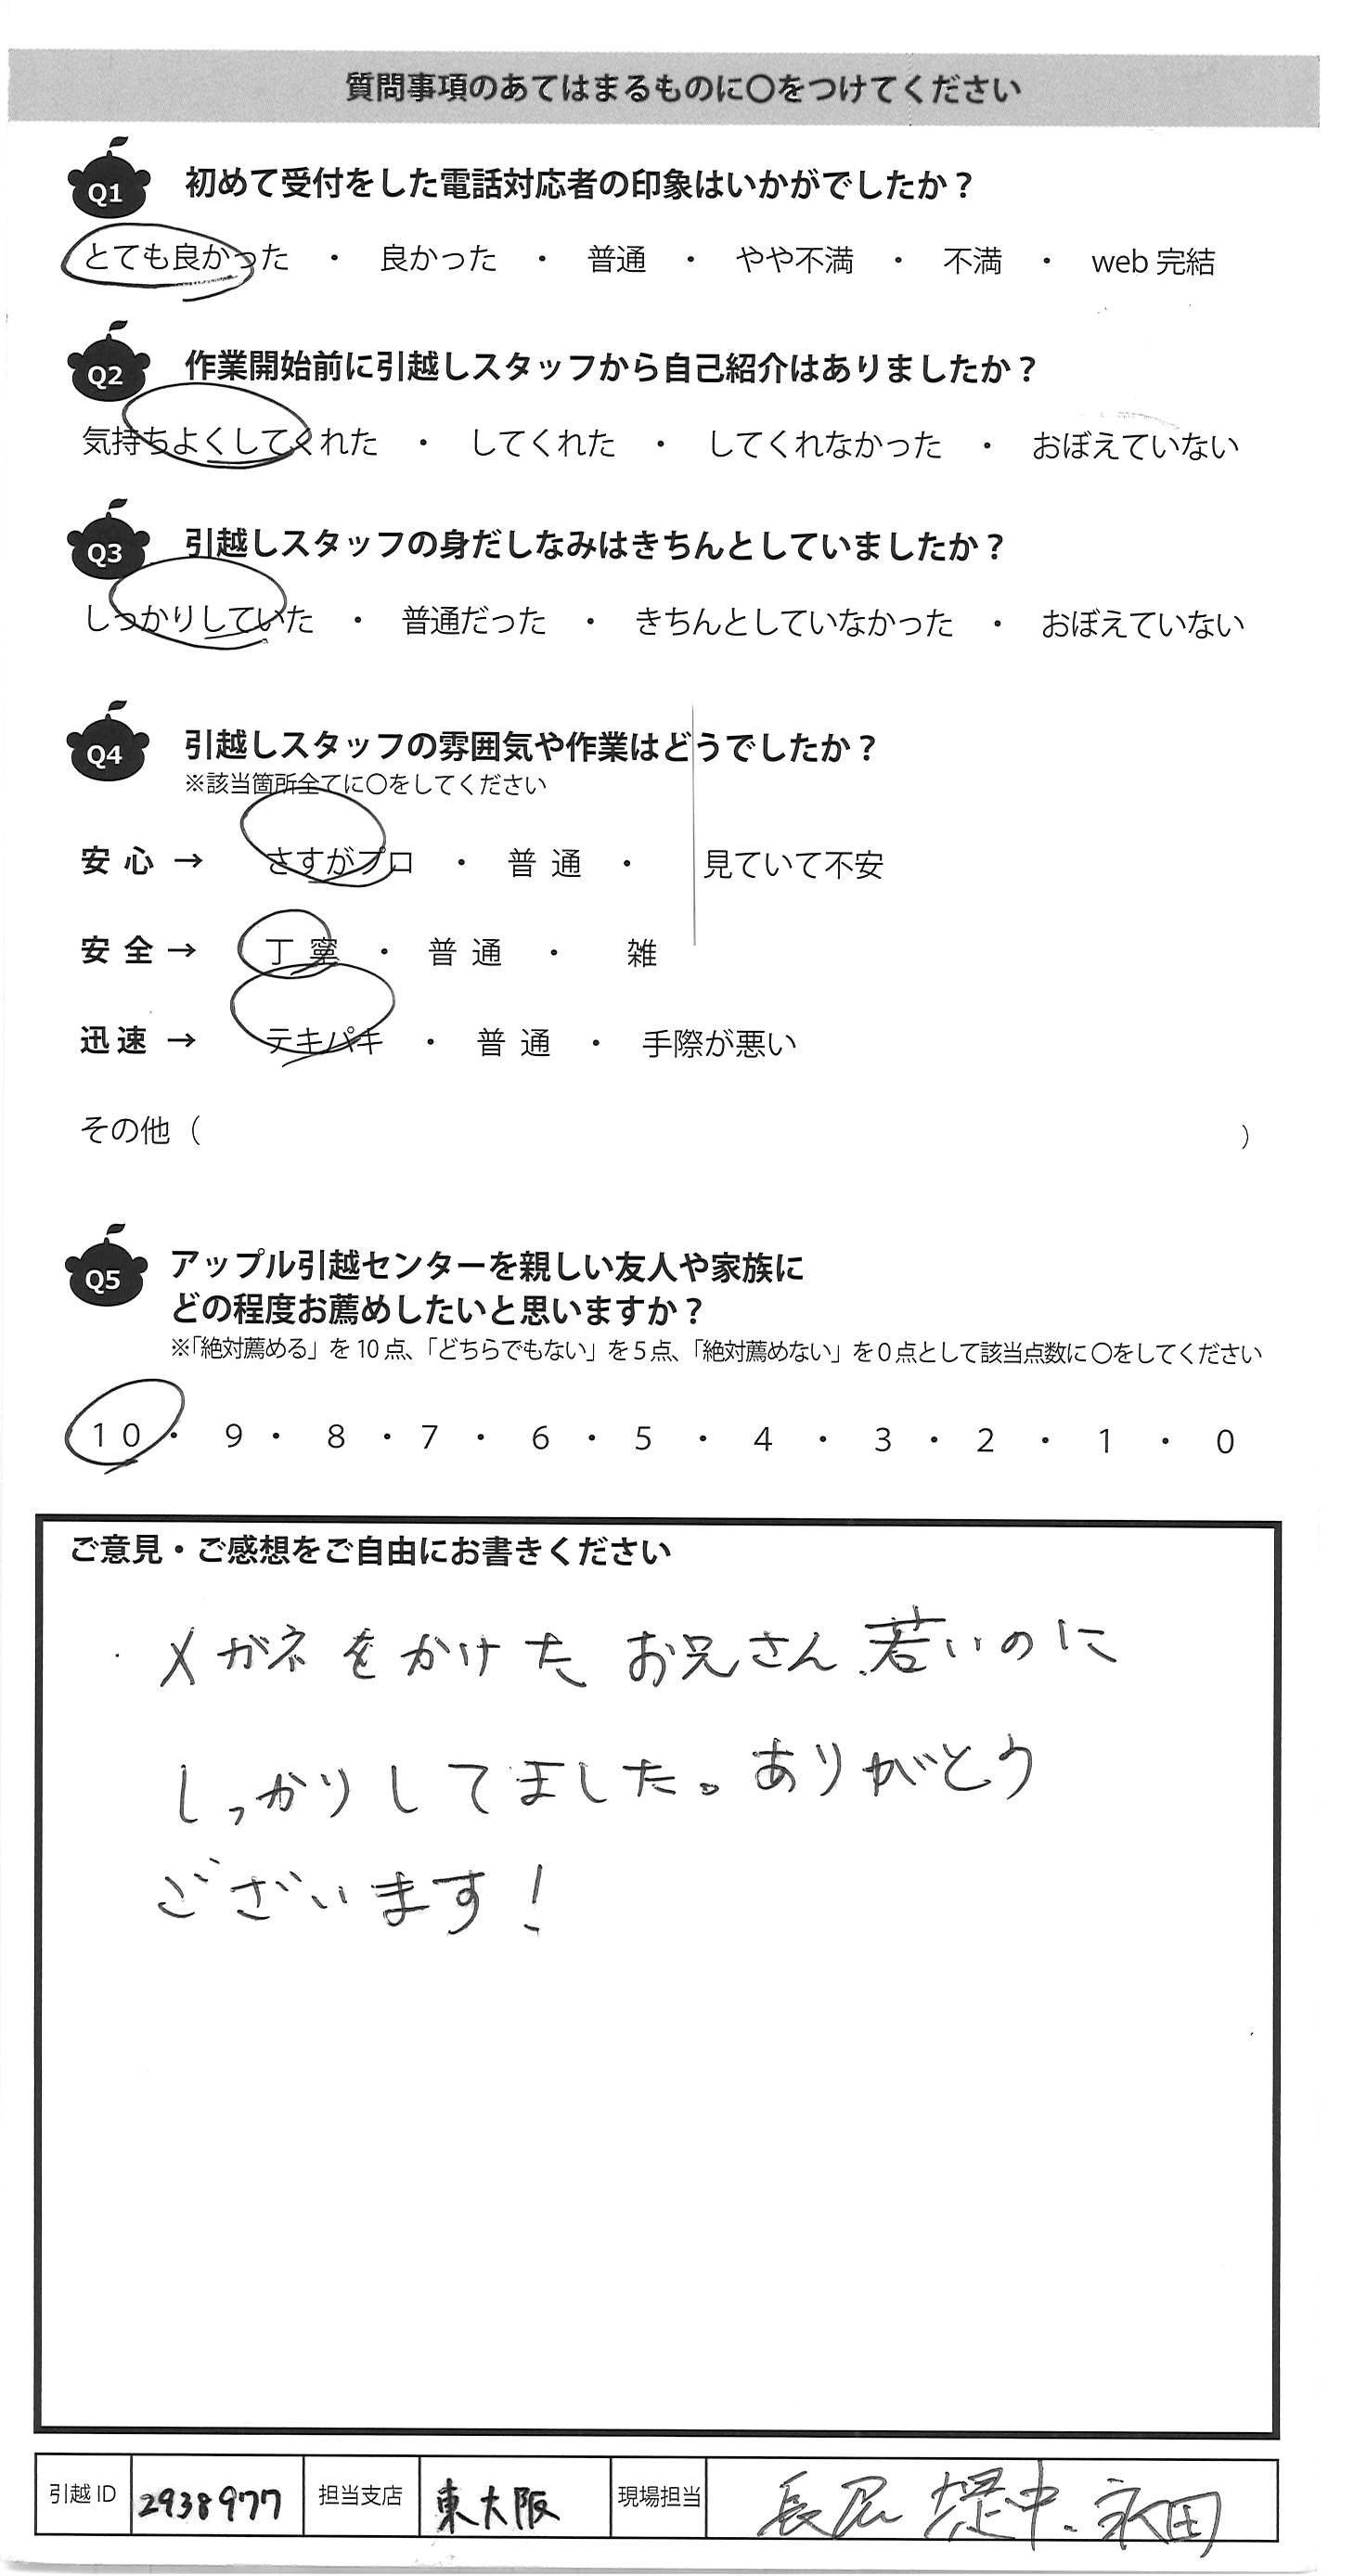 質問事項のあてはまるものに〇をつけてください
Q1 初めて受付をした電話対応者の印象はいかがでしたか？
とても良かった ・ 良かった ・ 普通 ・ やや不満 ・ 不満 ・ web 完結
Q2 作業開始前に引越しスタッフから自己紹介はありましたか？
気持ちよくしてくれた ・ してくれた ・ してくれなかった ・ おぼえていない
Q3 引越しスタッフの身だしなみはきちんとしていましたか？
しっかりしていた ・ 普通だった ・ きちんとしていなかった ・ おぼえていない
Q4 引越しスタッフの雰囲気や作業はどうでしたか？
※該当箇所全てに〇をしてください
安心 → さすがプロ ・ 普通 ・ 見ていて不安
安全 → 丁寧 ・ 普通 ・ 雑
迅速 → テキパキ ・ 普通 ・ 手際が悪い
その他（ ）
Q5 アップル引越センターを親しい友人や家族に
どの程度お薦めしたいと思いますか？
※「絶対薦める」を 10 点、「どちらでもない」を 5 点、「絶対薦めない」を 0 点として該当点数に 〇をしてください
10 ・ 9 ・ 8 ・ 7 ・ 6 ・ 5 ・ 4 ・ 3 ・ 2 ・ 1 ・ 0
ご意見・ご感想をご自由にお書きください
メガネをかけた お兄さん、若いのに
しっかりしてました。ありがとう
ございます！
引越 ID 2938977 担当支店 東大阪 現場担当 堤中、永田